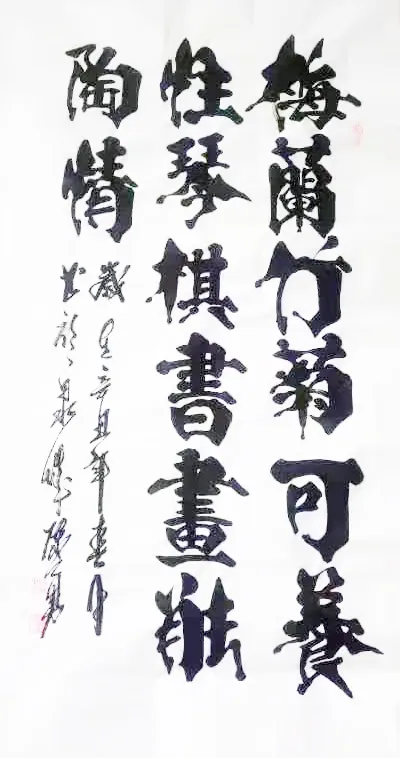 梅蘭竹菊可養
性琴棋書畫能
陶情
歲在辛丑年月
書於